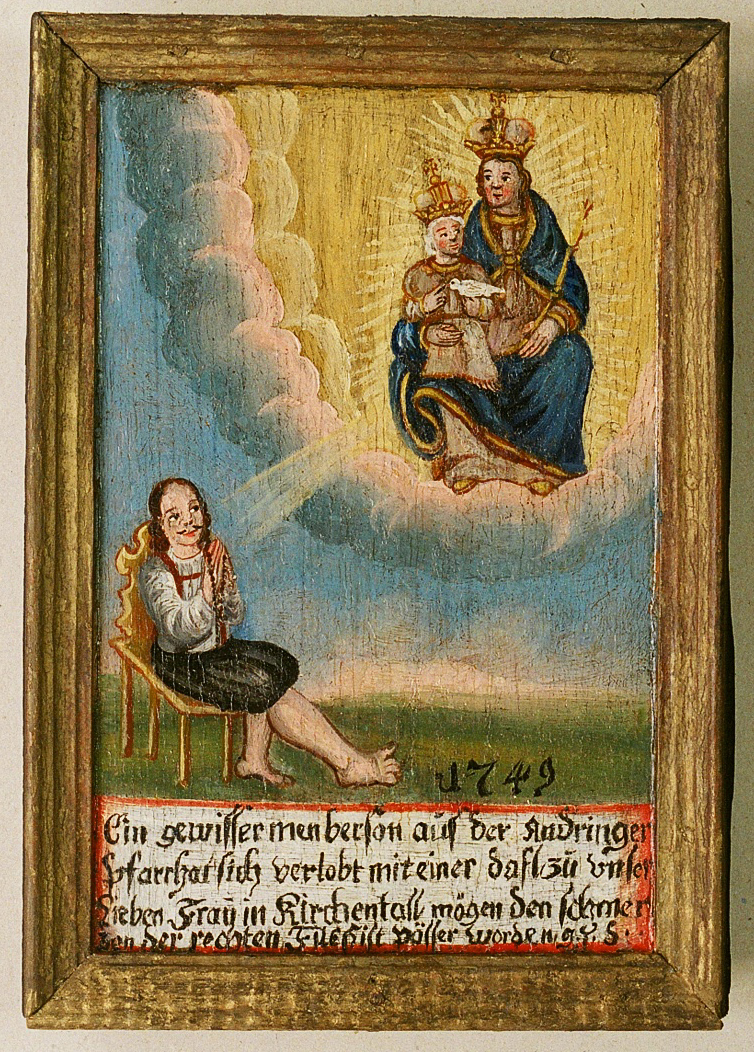 1749
Ein gewisser menberson auß der Andringer
Pfarrhat sich verlobt mit einer dafl zü vnser
Lieben Fraÿ in Kirchentall mögen den schmer
zen der rechten Füeß ist pösser worden. g. z. S.